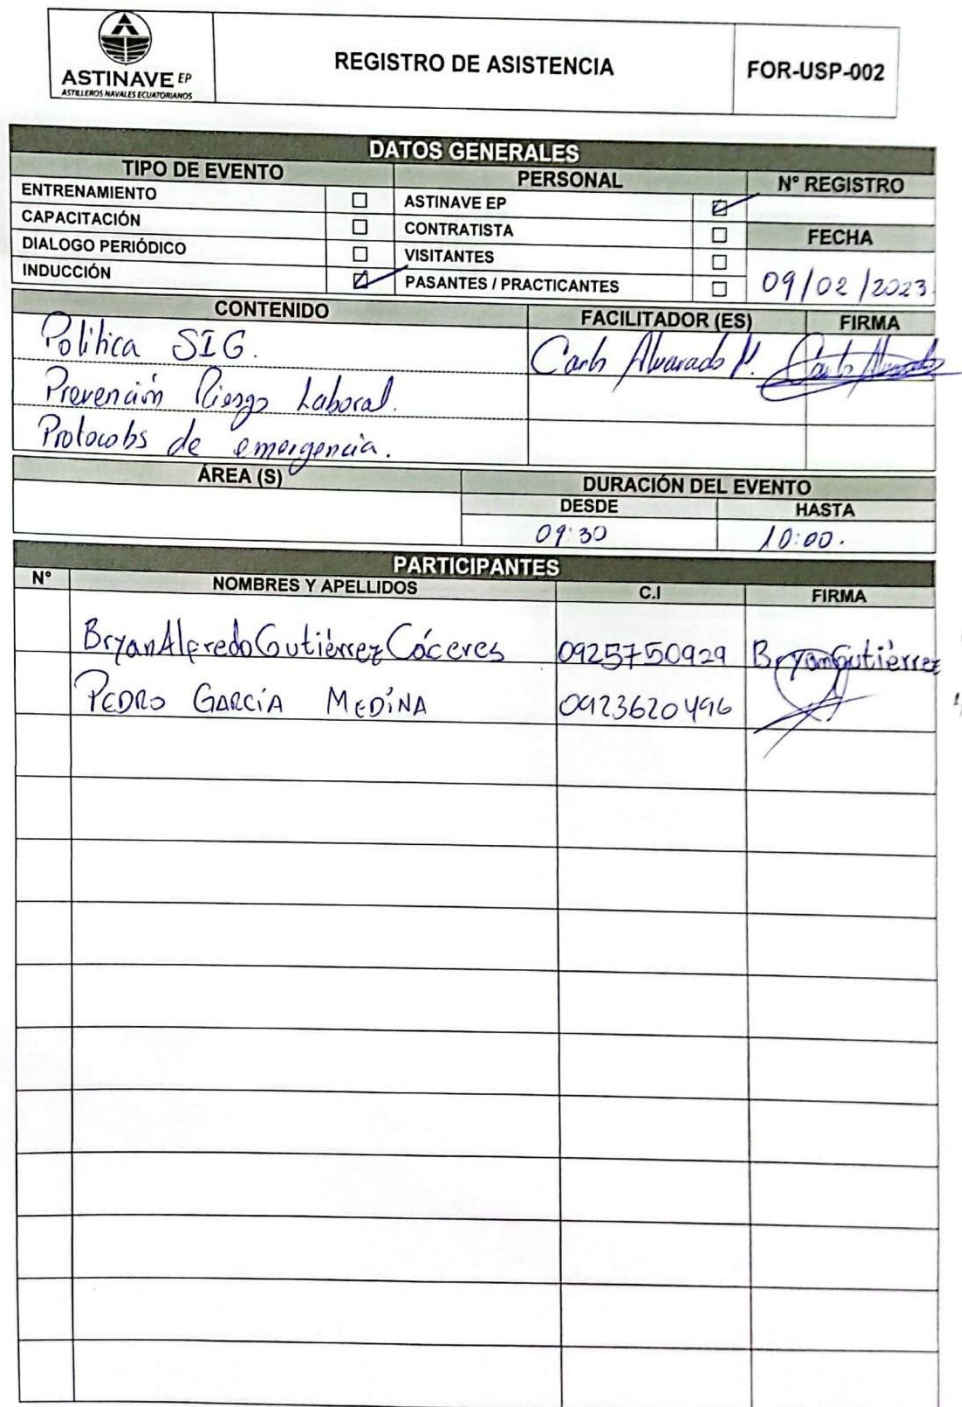 ASTINAVE EP
ASTILLEROS NAVALES ECUATORIANOS
REGISTRO DE ASISTENCIA
FOR-USP-002
DATOS GENERALES
TIPO DE EVENTO PERSONAL N° REGISTRO
ENTRENAMIENTO ☐ ASTINAVE EP ☑
CAPACITACIÓN ☐ CONTRATISTA ☐ FECHA
DIALOGO PERIÓDICO ☐ VISITANTES ☐
INDUCCIÓN ☑ PASANTES / PRACTICANTES ☐ 09/02/2023
CONTENIDO FACILITADOR (ES) FIRMA
Politica SIG. Carlos Alvarado Carlos Alvarado
Prevención Riesgo Laboral.
Protocolos de emergencia.
ÁREA (S) DURACIÓN DEL EVENTO
DESDE HASTA
09:30 10:00.
PARTICIPANTES
N° NOMBRES Y APELLIDOS C.I FIRMA
Bryan Alfredo Gutiérrez Cáceres 0925750929 Bryan Gutiérrez
PEDRO GARCÍA MEDINA 0923620496